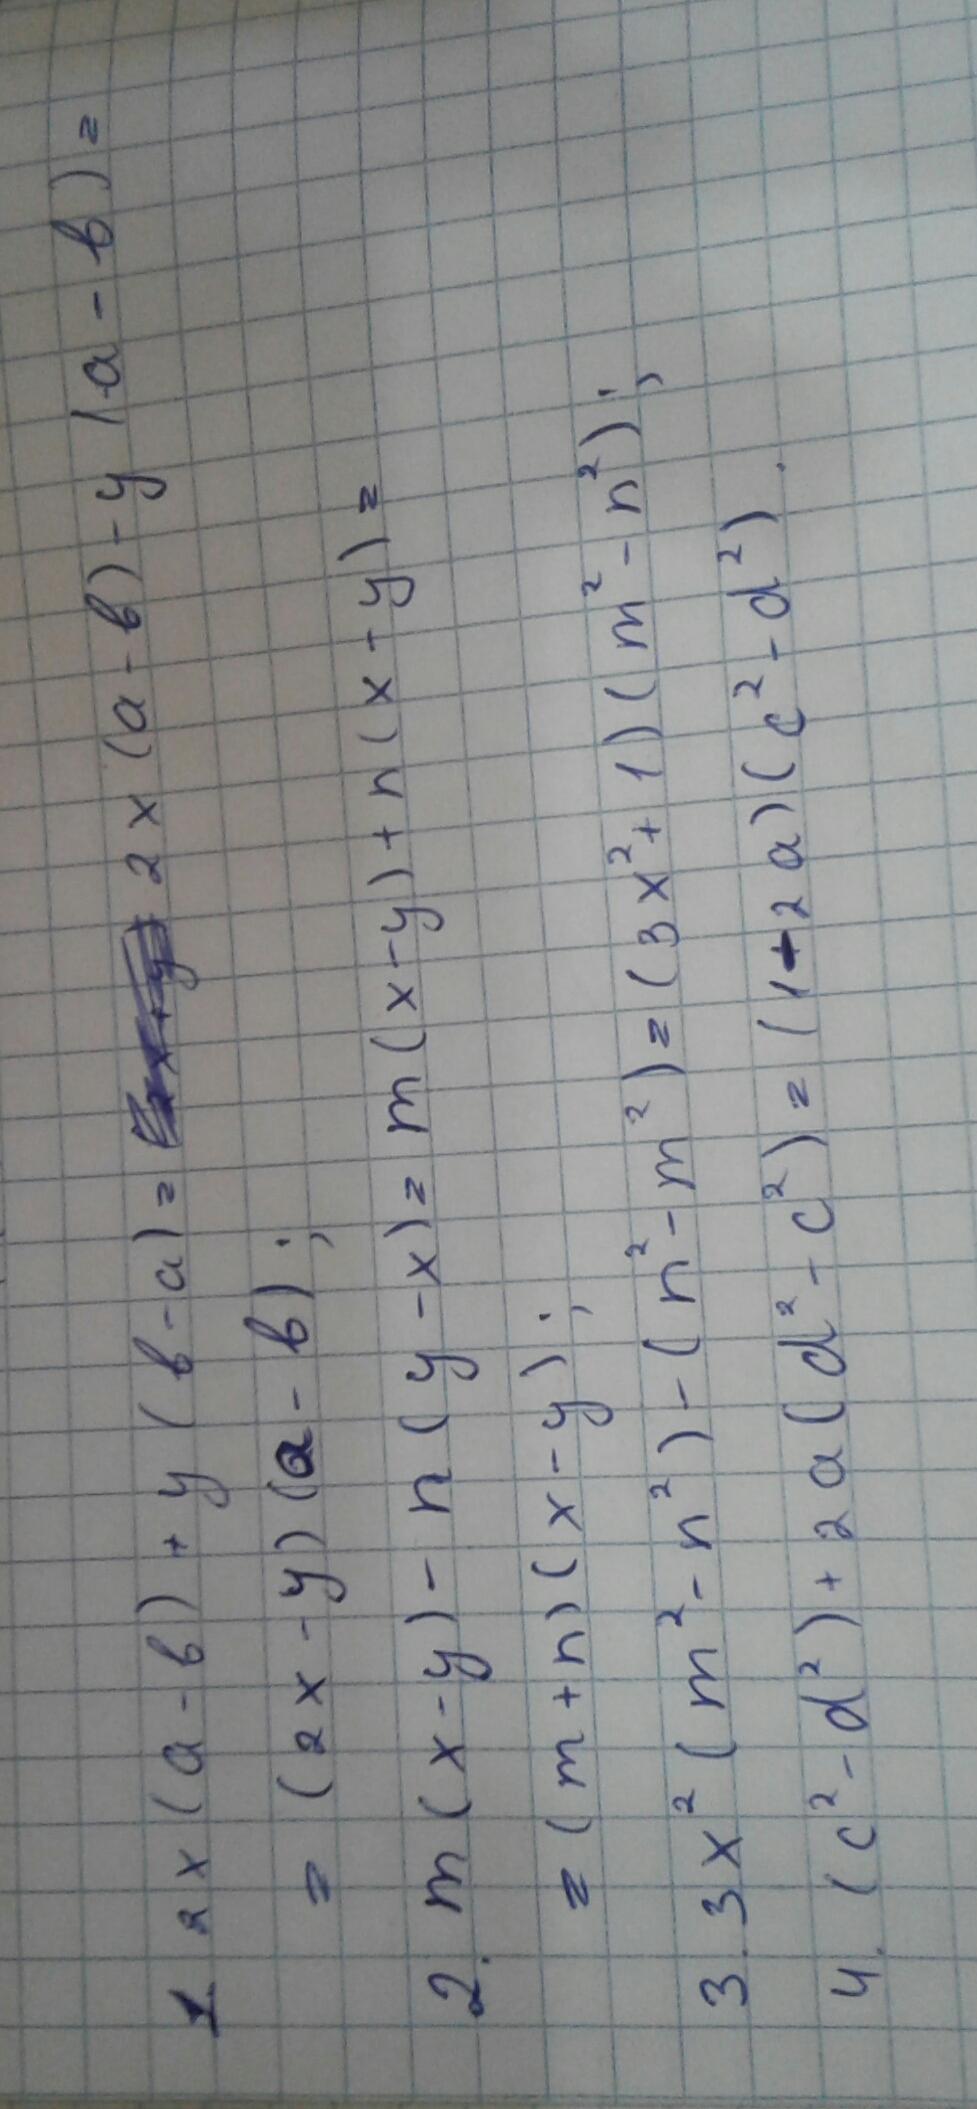 1. 2x(a-b)+y(b-a)= 2x(a-b)-y(a-b)=
=(2x-y)(a-b);
2. m(x-y)-n(y-x)=m(x-y)+n(x-y)=
=(m+n)(x-y);
3. 3x²(m²-n²)-(n²-m²)=(3x²+1)(m²-n²);
4. (c²-d²)+2a(d²-c²)=(1-2a)(c²-d²).